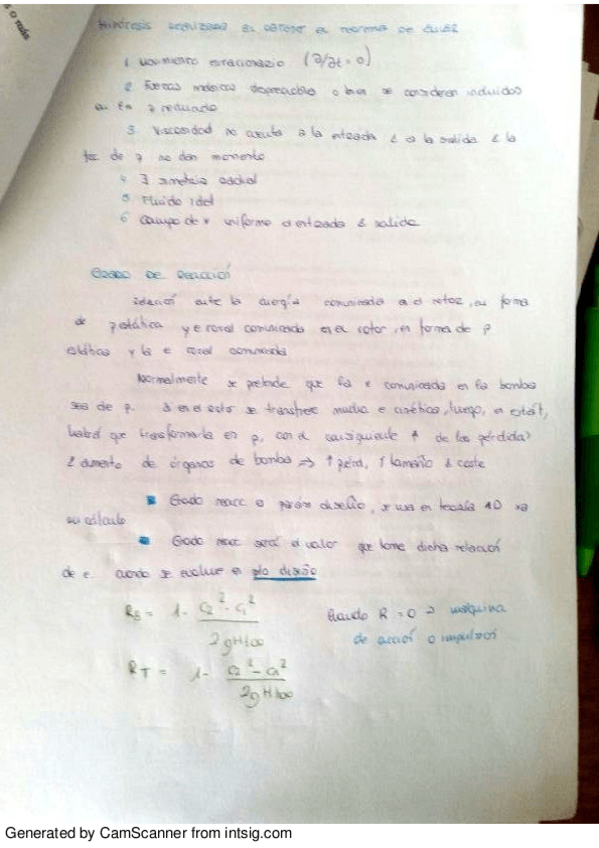 o más
Hipótesis realizadas al obtener el teorema de Euler
1 Movimiento estacionario (∂/∂t = 0)
2 Fuerzas másicas despreciables o bien se consideran incluidas
en la p reducida
3 Viscosidad no afecta a la entrada & a la salida & la
fza de p no dan momento
4 ∃ simetría axial
5 Fluido idel
6 Campo de v uniforme a entrada & salida
Grado de reacción
Relación entre la energía comunicada en el rotor, en forma
de p estática y e total comunicada en el rotor, en forma de p
estática y la e total comunicada
Normalmente se pretende que la e comunicada en la bomba
sea de p. Si en el rotor se transfiere mucha e cinética, luego, en estát,
habrá que transformarla en p, con el consiguiente ↑ de las pérdidas
& aumento de órganos de bombas ⇒ ↑ pérd, ↑ tamaño & coste
Grado reacc o parám diseño, se usa en teoría 1D xa
su cálculo
Grado reac será el valor que tome dicha relación
de e cuando se evalue en pto diseño
R_B = 1 - (c₂² - c₁²) / 2gHt∞
Cuando R = 0 → máquina
de acción o impulsión
R_T = 1 - (c₂² - c₁²) / 2gHt∞
Generated by CamScanner from intsig.com